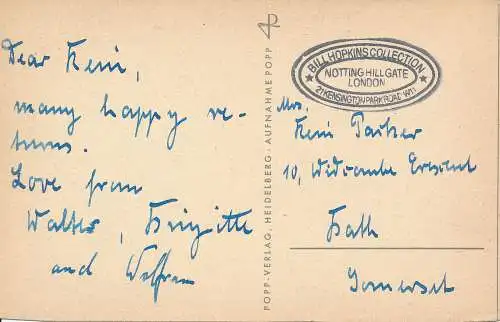 Dear Keni,
many happy re-
turns.
Love from
Walter, Brigitte
and Wolfram
POPP-VERLAG, HEIDELBERG · AUFNAHME POPP
BILL HOPKINS COLLECTION
NOTTING HILL GATE
LONDON
21 KENSINGTON PARK ROAD W11
Mrs.
Keni Parker
10, Widcombe Crescent
Bath
Somerset